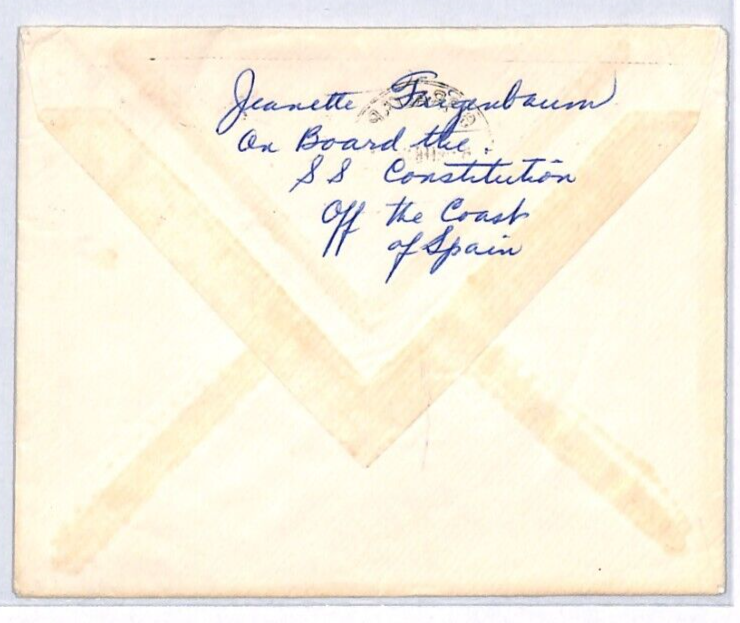 Jeanette Feigenbaum
On Board the
SS Constitution
Off the Coast
of Spain